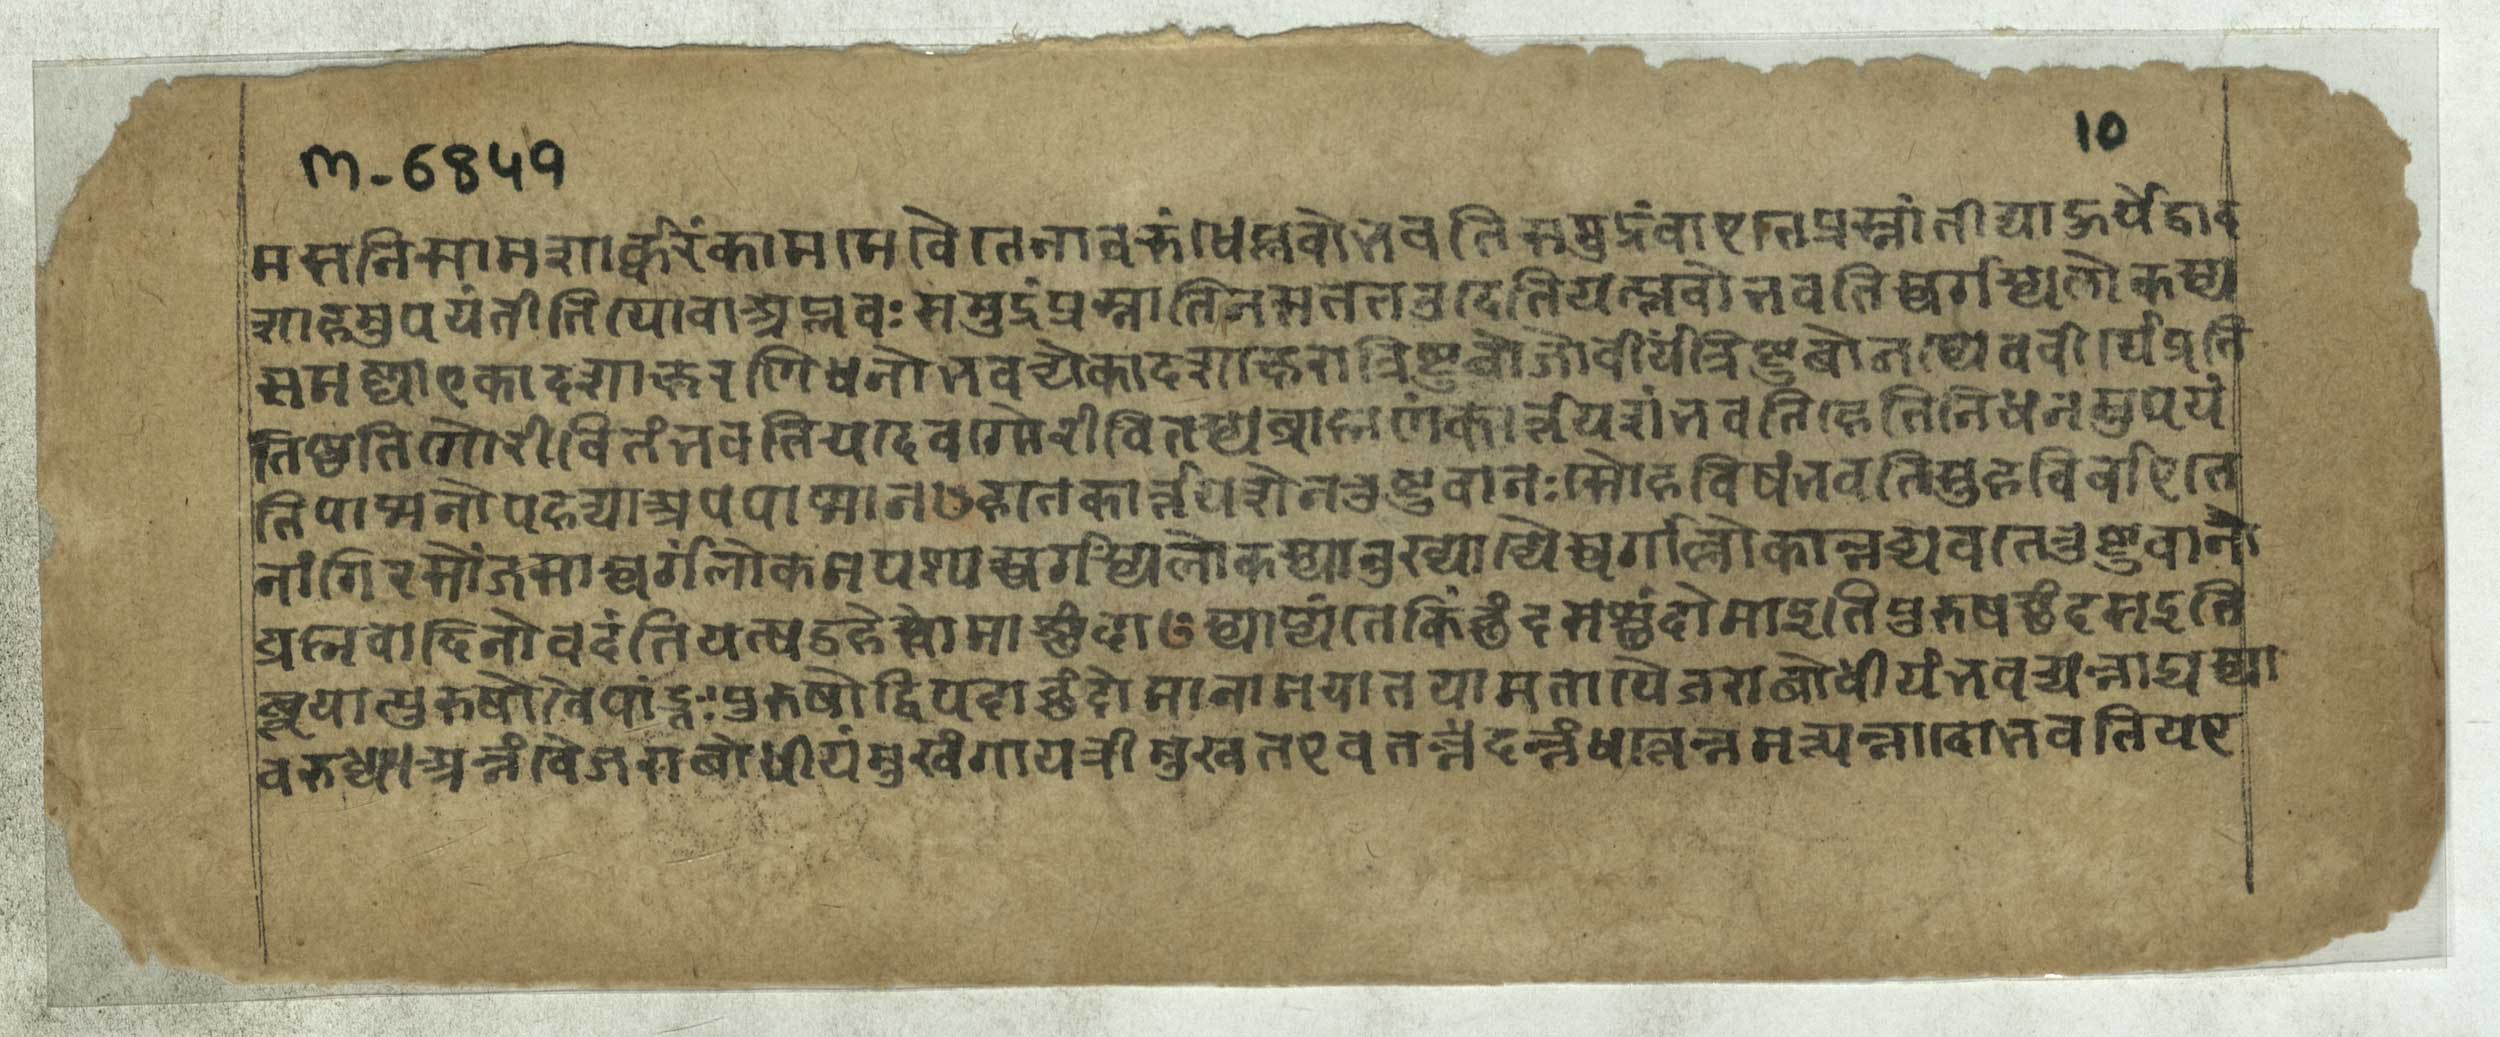 M-6849
10
मसनिसामशाक्वरंकाममेवैतेनावरुंधेप्लवोभवतिसमुद्रंवाएतेप्रस्नांतीत्याहुर्येद्वाद
शाहमुपयंतीतियोवाअप्लवःसमुद्रंप्रस्नातिनसततउदेतियत्प्लवोभवतिस्वर्गस्यलोकस्य
समष्ट्याएकादशाक्षरणिधनोभवत्येकादशाक्षरात्रिष्टुबोजोवीर्यंत्रिष्टुबोजस्येववीर्येप्रति
तिष्ठतिगौरीवितंभवतियदेवगौरीवितस्यब्राह्मणंकार्त्तयशंभवतिहेतिनिधनमुपयं
तिपाप्मनोपहत्याअपपाप्मानꣳहतेकार्त्तयशेनतुष्टुवानःसौहविषंभवतिसुहविर्वाएते
नांगिरसोंजसास्वर्गंलोकमपश्यस्वर्गस्यलोकस्यानुख्यात्यैस्वर्गाल्लोकान्नच्यवतेतुष्टुवानो
ब्रह्मवादिनोवदंतियत्षडहेस्तोमाश्छंदाꣳस्याप्यंतेकिंछंदसश्छंदोमाइतिपुरुषछंदसइति
ब्रूयात्पुरुषोवैपांङ्क्तःपुरुषोद्विपदाछंदोमानामयातयामतायैजराबोधीयंभवत्यन्नाद्यस्या
वरुध्याअन्नंवैजराबोधीयंमुखंगायत्रीमुखतएवतन्नैदन्नंधत्तेन्नमत्त्यन्नादोभवतियए